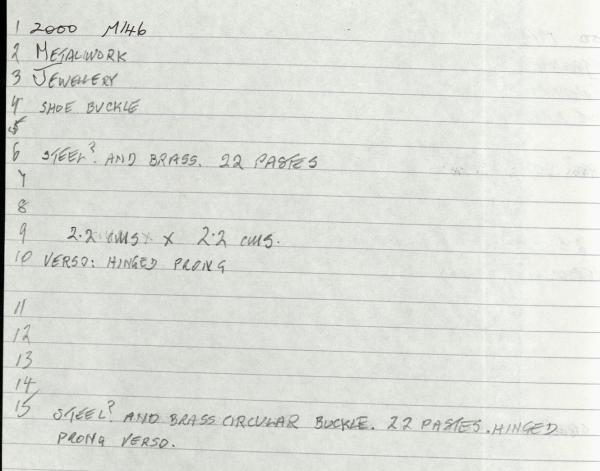 1 2000 M146
2 METALWORK
3 JEWELLERY
4 SHOE BUCKLE
5
6 STEEL? AND BRASS. 22 PASTES
7
8
9 2.2 cms x 2.2 cms.
10 VERSO: HINGED PRONG
11
12
13
14
15 STEEL? AND BRASS CIRCULAR BUCKLE. 22 PASTES. HINGED
PRONG VERSO.